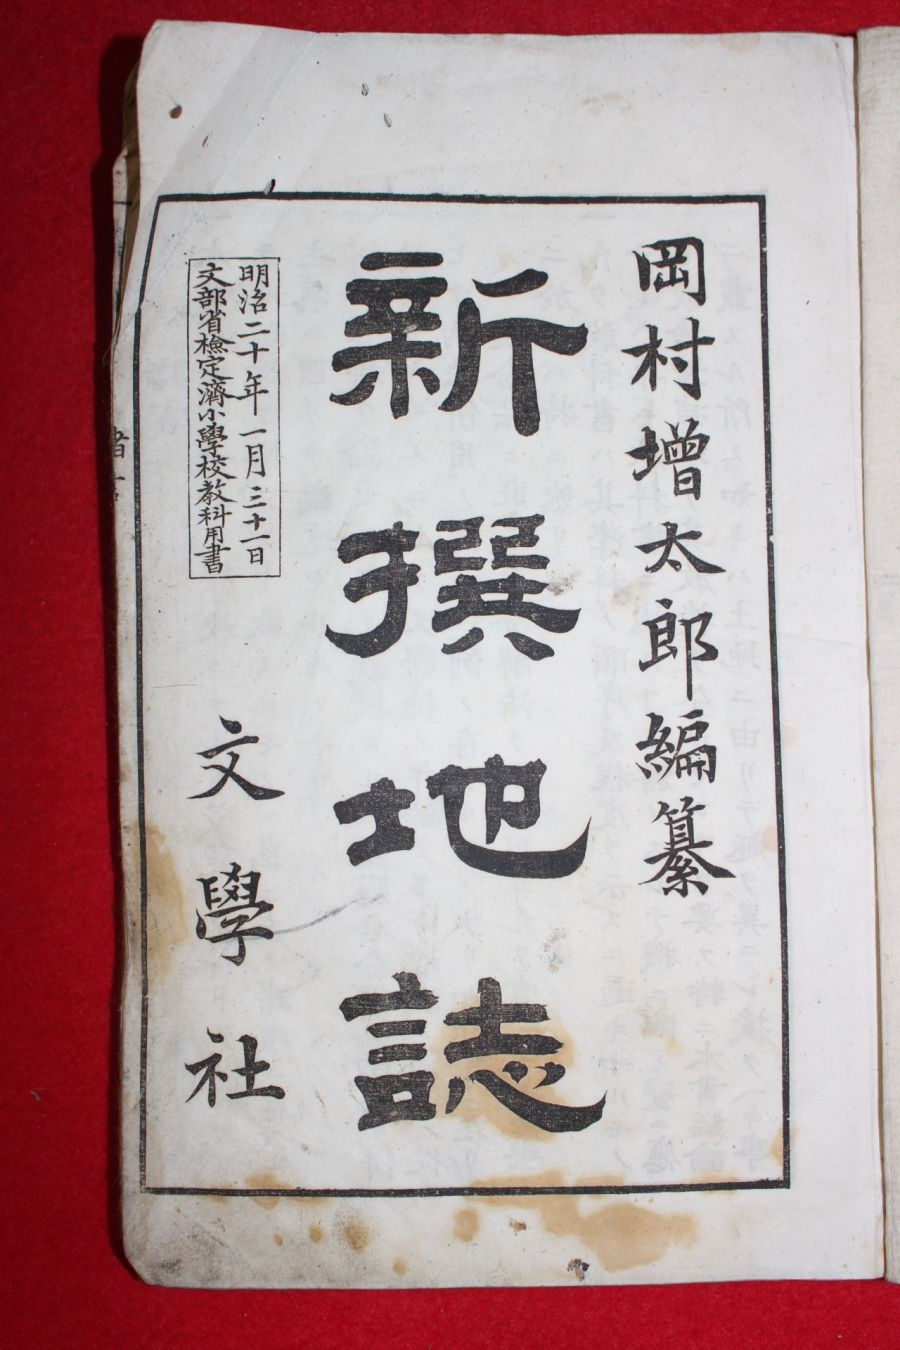 岡村増太郎編纂
新撰地誌
明治二十年一月三十一日
文部省檢定濟小學校教科用書
文學社